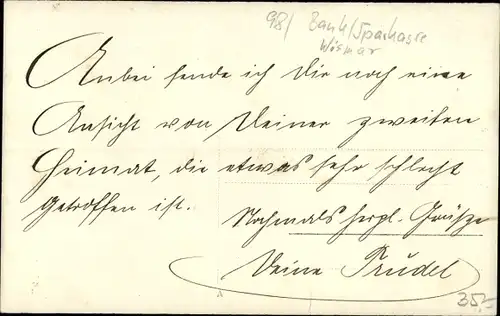 98/ Bank/Sparkasse
Wismar
Anbei sende ich Dir noch eine
Ansicht von Deiner zweiten
Heimat, die etwas sehr schlecht
getroffen ist.
Nochmals herzl. Grüße
Deine Trudel
35,-